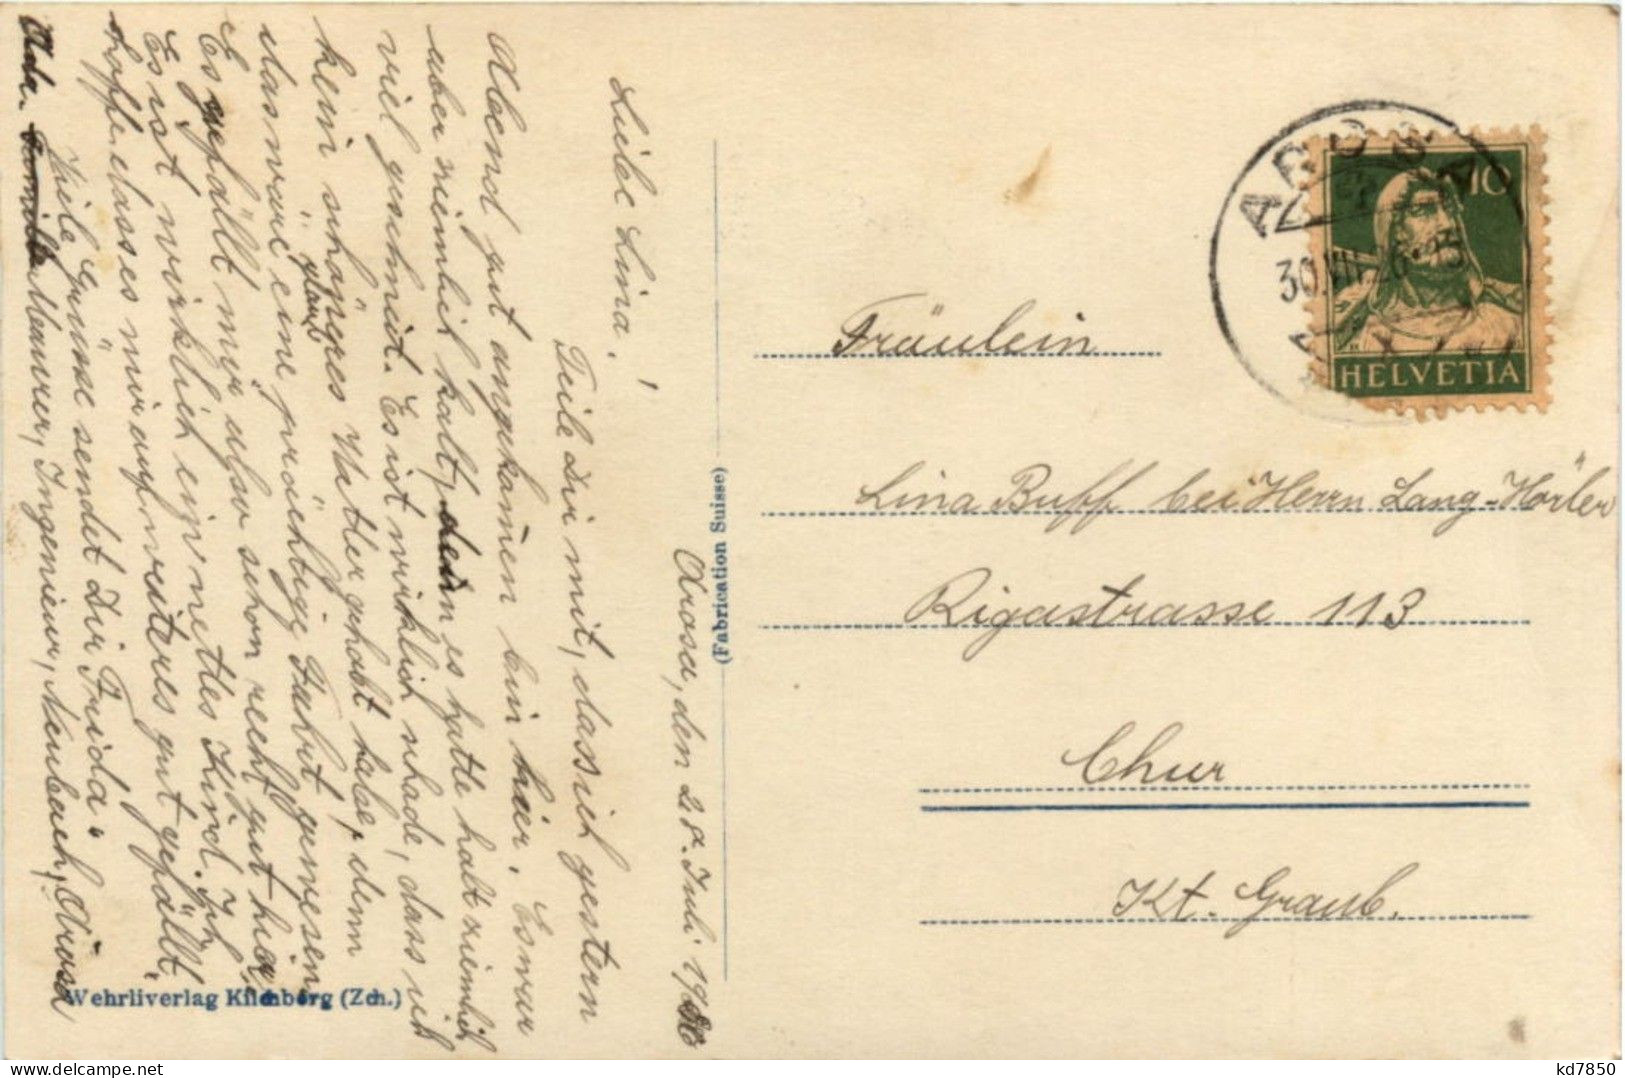 Arosa, den 28. Juli 1926
Liebe Lina!
Teile Dir mit, dass ich gestern
Abend gut angekomen bin hier. Es war
aber ziemlich kalt, denn es hatte halt ziemlich
viel geschneit. Es ist wirklich schade, dass ich
kein schöneres Wetter gehabt habe, denn
das wäre eine prächtige Fahrt gewesen
glaub
Es gefällt mir also schon recht gut hier.
Es ist wirklich ein nettes Kind. Ich
hoffe dass es mir auf weiteres gut gefällt.
Viele Grüsse sendet Dir Frida.
Adr. Familie Maurer, Ingenieur, Neubach, Arosa
(Fabrication Suisse)
Wehrliverlag Kilchberg (Zch.)
AROSA
30.VII.26.-23
10
HELVETIA
Fräulein
Lina Buff bei Herrn Lang-Hörler
Rigastrasse 113
Chur
Kt. Graub.
kd7850